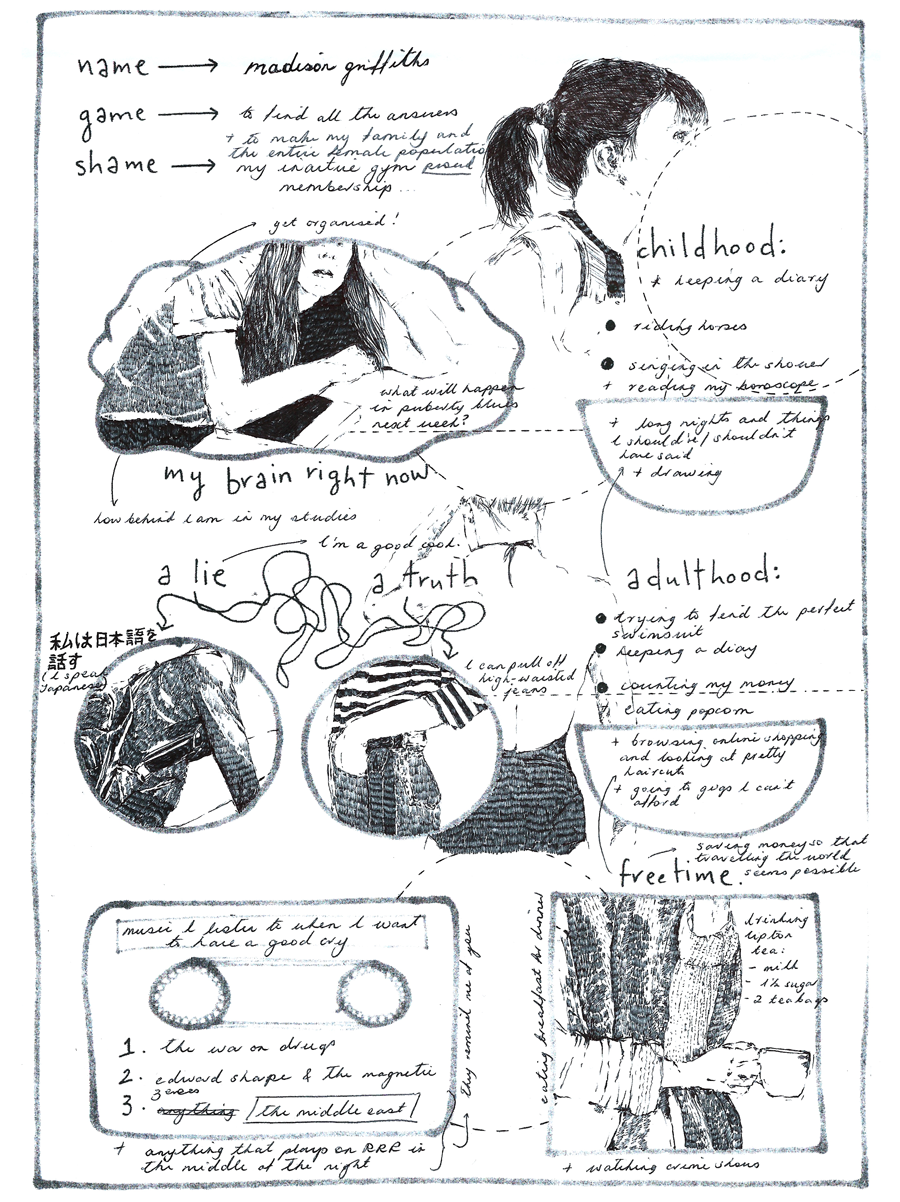 name → madison griffiths
game → to find all the answers
+ to make my family and
the entire female population
proud
shame → my inactive gym
membership...
get organised!
what will happen
in puberty blues
next week?
my brain right now
how behind i am in my studies
childhood:
* keeping a diary
● riding horses
● singing in the shower
+ reading my horoscope
+ long nights and things
i should've/shouldn't
have said
+ drawing
a lie
i'm a good cook.
a truth
私は日本語を
話す
(i speak
japanese)
i can pull off
high-waisted
jeans
adulthood:
● trying to find the perfect
swimsuit
● keeping a diay
● counting my money
+ eating popcorn
+ browsing online shopping
and looking at pretty
haircuts
+ going to gigs i can't
afford
freetime.
saving money so that
travelling the world
seems possible
music i listen to when i want
to have a good cry
1. the war on drugs
2. edward sharpe & the magnetic
zeroes
3. anything the middle east
+ anything that plays on RRR in
the middle of the night
they remind me of you
eating breakfast for dinner
drinking
lipton
tea:
- milk
- 1½ sugar
- 2 teabags
+ watching crime shows